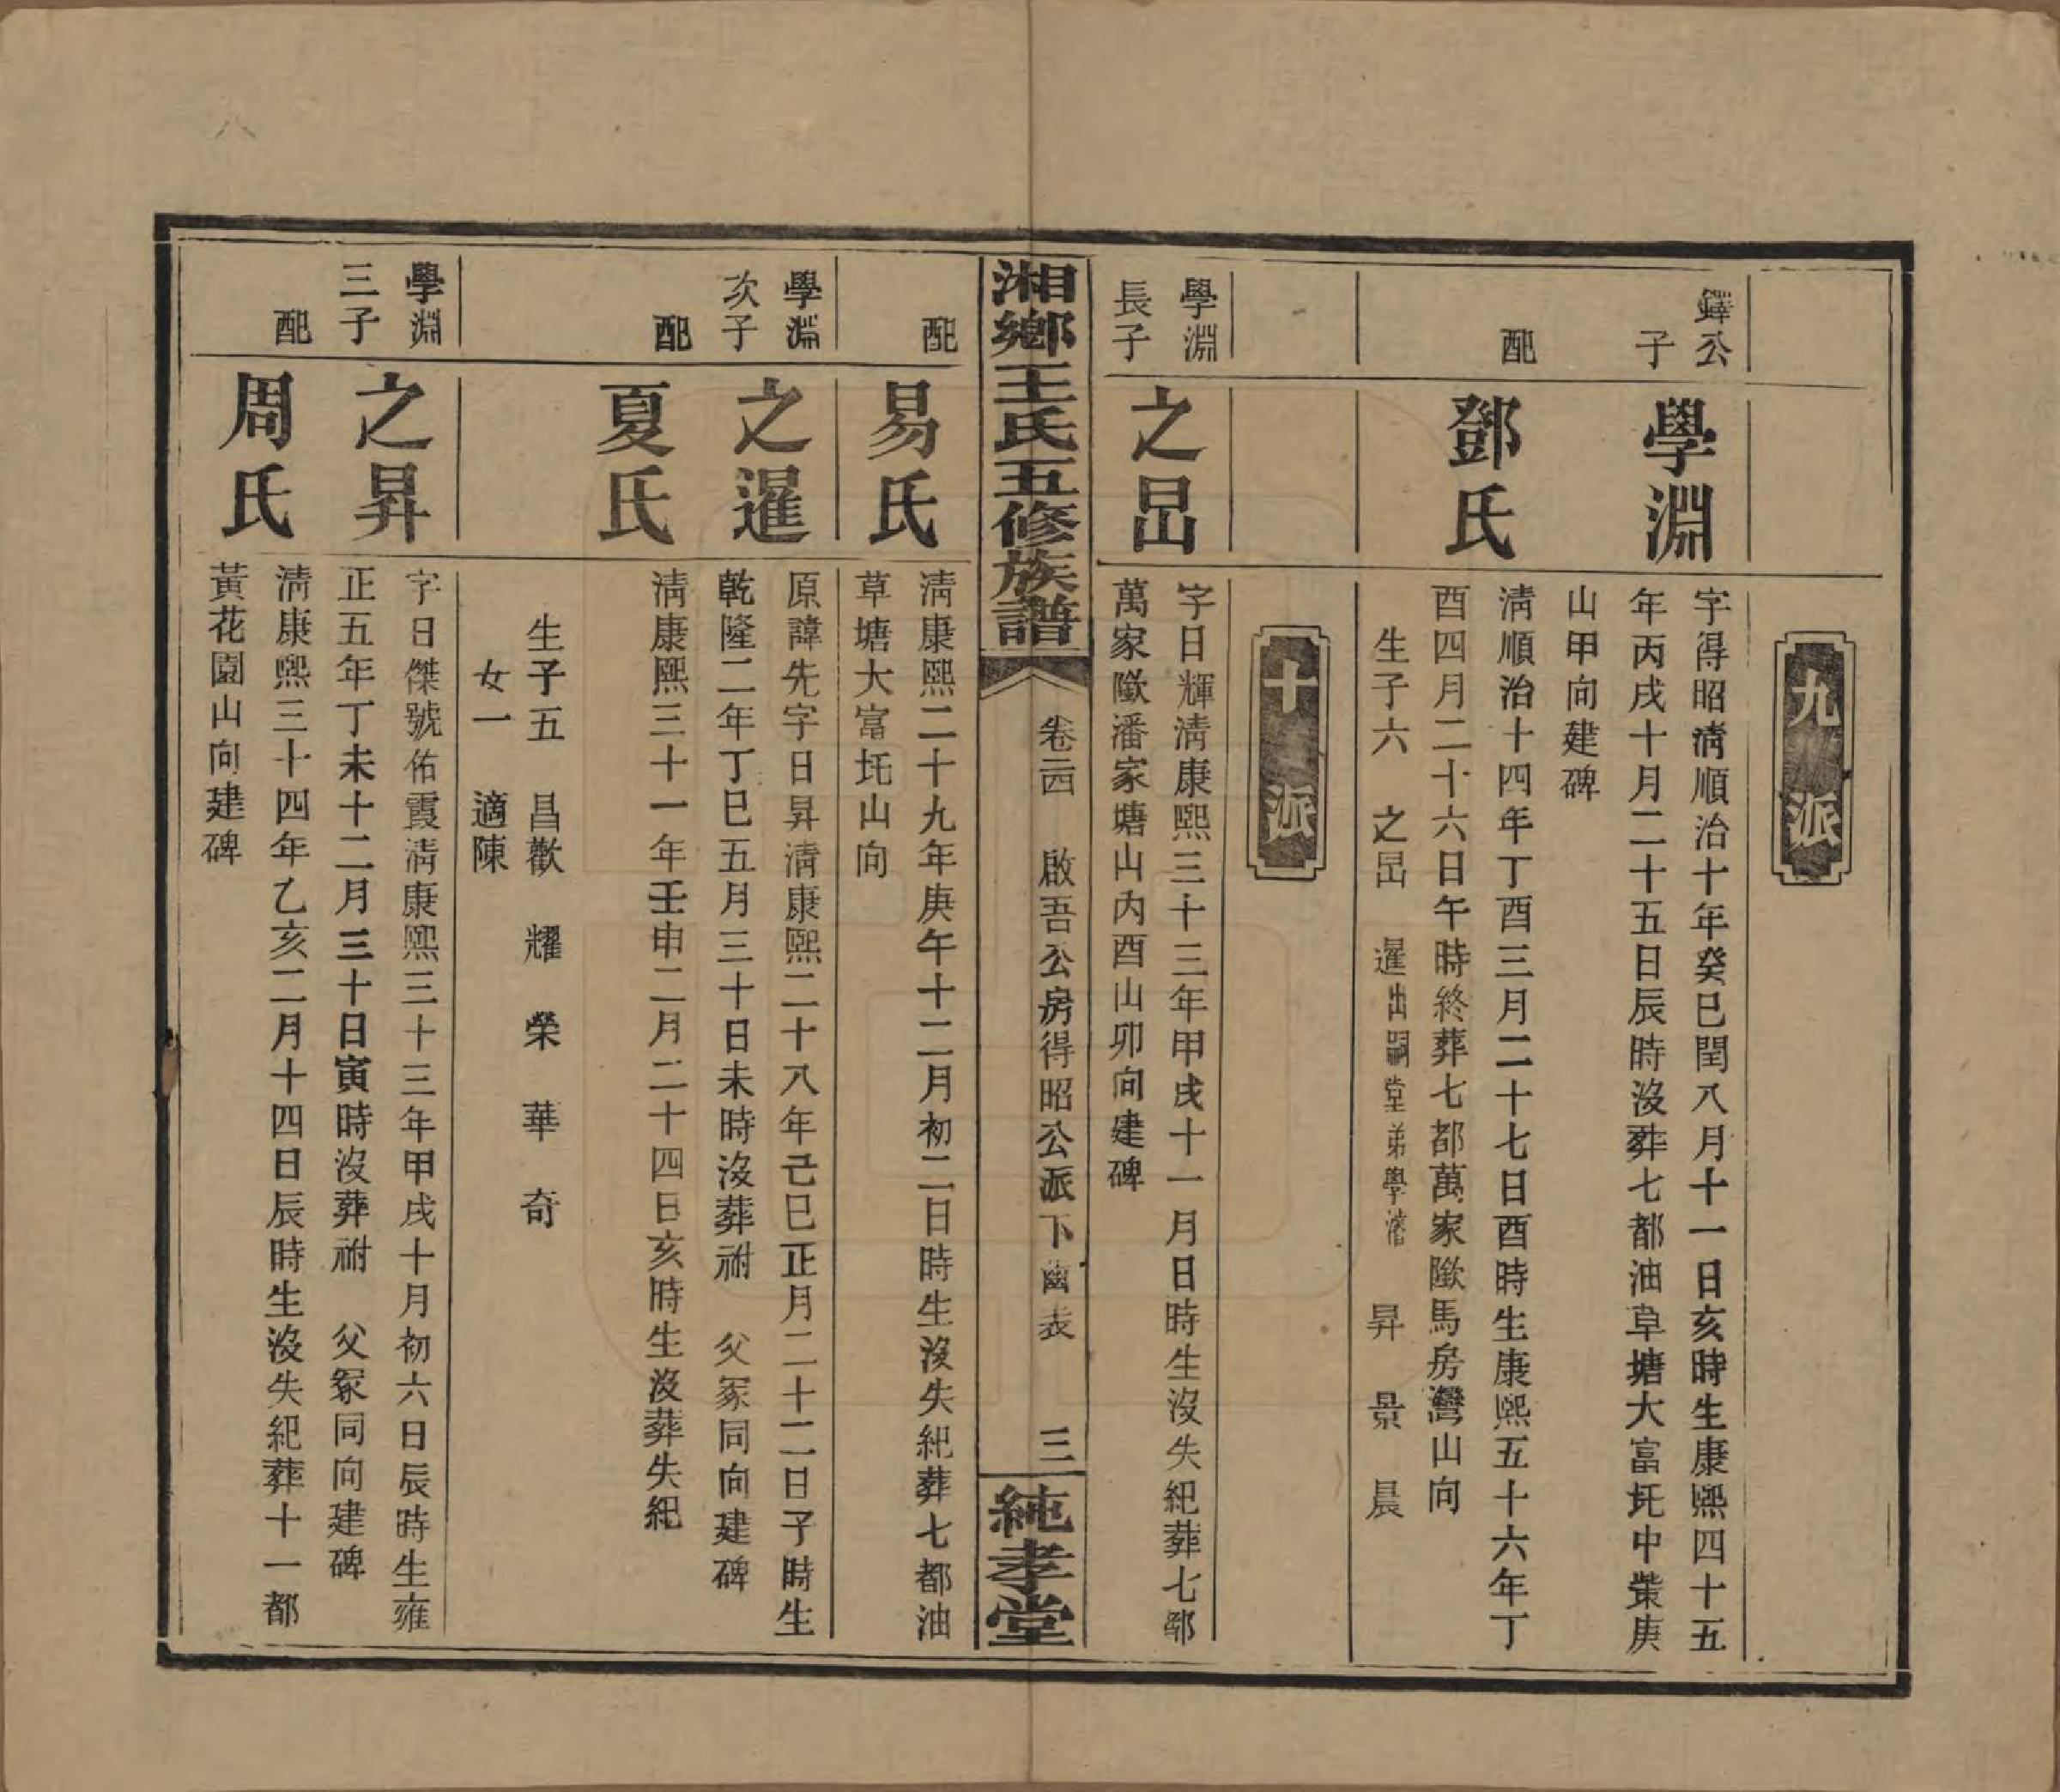 九派
鐸公
子
學淵
字得昭淸順治十年癸巳閏八月十一日亥時生康熙四十五
年丙戌十月二十五日辰時沒葬七都油草塘大富圫中塋庚
山甲向建碑
配
鄧氏
淸順治十四年丁酉三月二十七日酉時生康熙五十六年丁
酉四月二十六日午時終葬七都萬家隞馬房灣山向
生子六 之昢 暹出嗣堂弟學濬 昇 景 晨
十派
學淵
長子
之昢
字日輝淸康熙三十三年甲戌十一月日時生沒失紀葬七都
萬家隞潘家塘山內酉山卯向建碑
湘鄉王氏五修族譜
卷二四 啟吾公房得昭公派下齒表 三
純孝堂
配
易氏
淸康熙二十九年庚午十二月初二日時生沒失紀葬七都油
草塘大富圫山向
學淵
次子
之暹
原諱先字日昇淸康熙二十八年己巳正月二十二日子時生
乾隆二年丁巳五月三十日未時沒葬祔 父冢同向建碑
配
夏氏
淸康熙三十一年壬申二月二十四日亥時生沒葬失紀
生子五 昌歡 耀 榮 華 奇
女一 適陳
學淵
三子
之昇
字日傑號佑霞淸康熙三十三年甲戌十月初六日辰時生雍
正五年丁未十二月三十日寅時沒葬祔 父冢同向建碑
配
周氏
淸康熙三十四年乙亥二月十四日辰時生沒失紀葬十一都
黃花園山向建碑